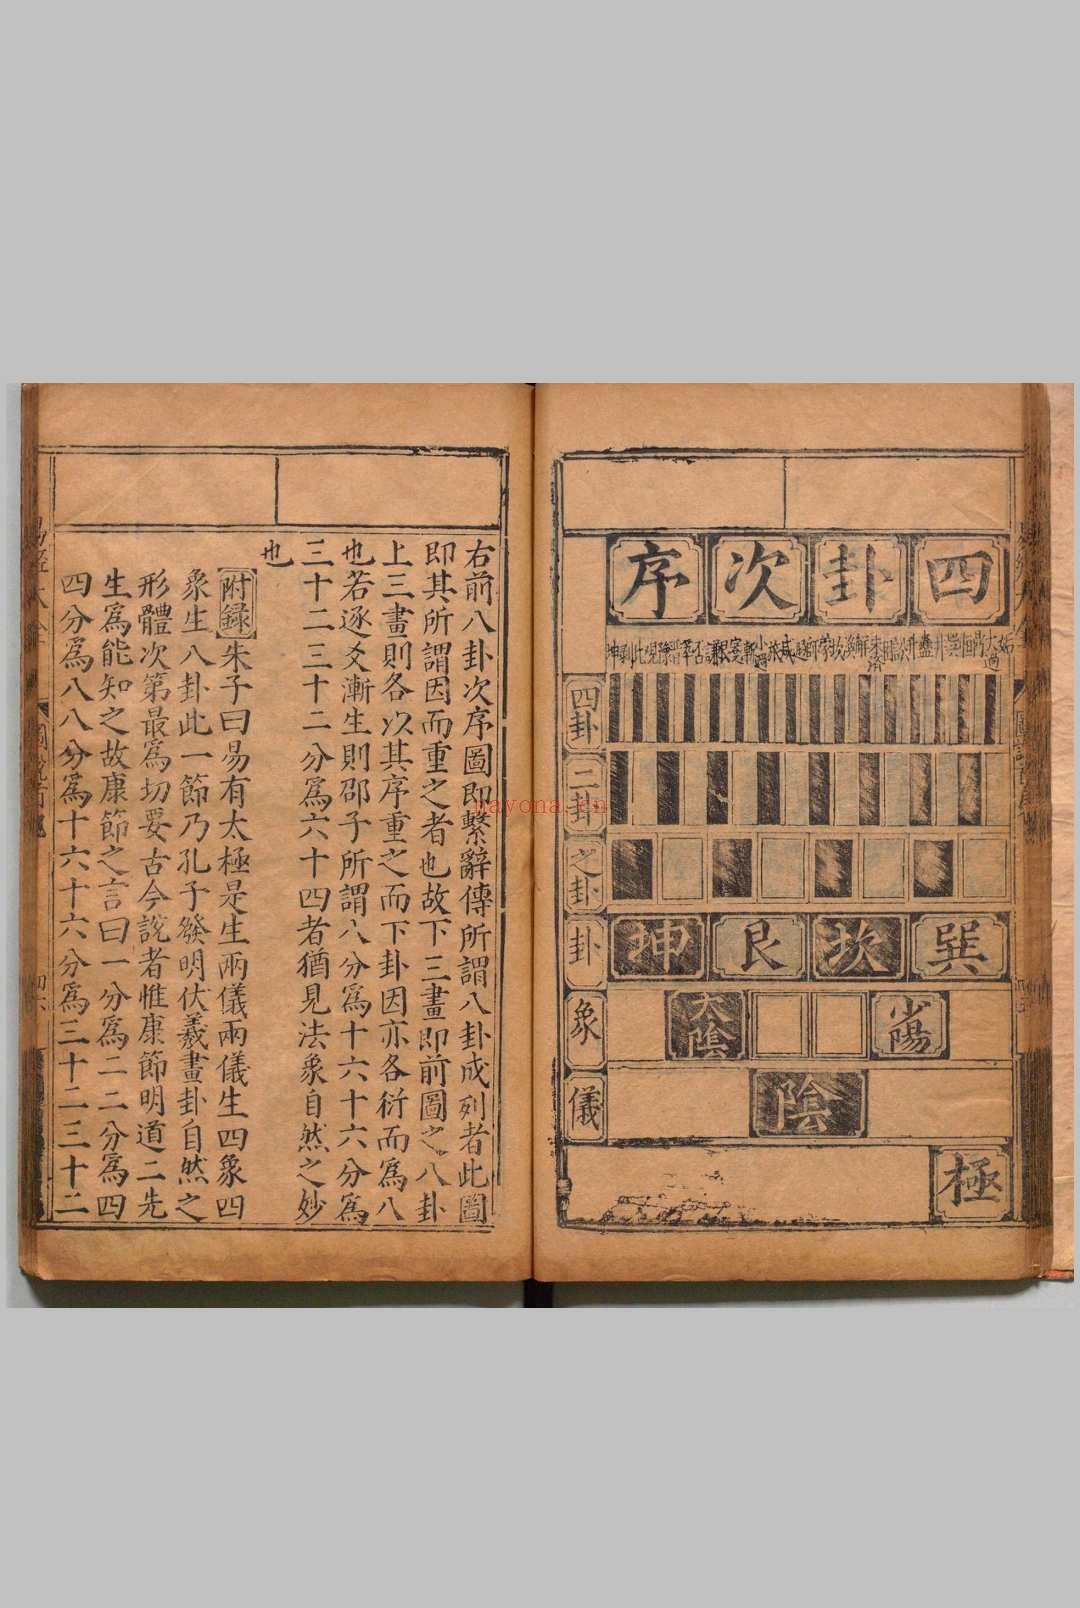 四卦次序
姤 大過 鼎 恒 巽 井 蠱 升 訟 困 未濟 解 渙 坎 蒙 師 遯 咸 旅 小過 漸 蹇 艮 謙 否 萃 晉 豫 觀 比 剝 坤
四卦
二卦
之卦
卦
巽 坎 艮 坤
象
少陽 太陰
儀
陰
極
右前八卦次序圖即繫辭傳所謂八卦成列者此圖
即其所謂因而重之者也故下三畫即前圖之八卦
上三畫則各以其序重之而下卦因亦各衍而爲八
也若逐爻漸生則邵子所謂八分爲十六十六分爲
三十二三十二分爲六十四者猶見法象自然之妙
也
附録朱子曰易有太極是生兩儀兩儀生四象四
象生八卦此一節乃孔子發明伏羲畫卦自然之
形體次第最爲切要古今說者惟康節明道二先
生爲能知之故康節之言曰一分爲二二分爲四
四分爲八八分爲十六十六分爲三十二三十二
nayona.cn